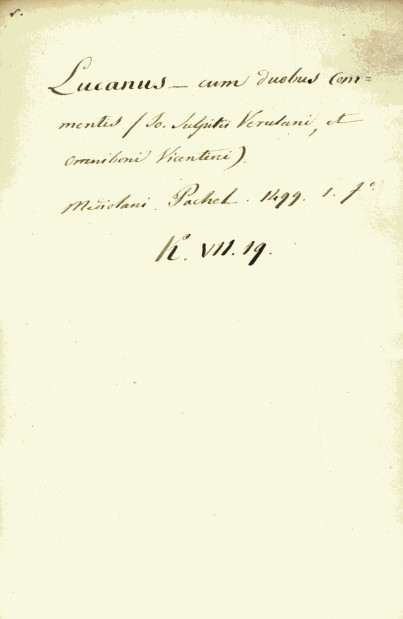 s.
Lucanus — cum duobus Com=
mentis (Jo. Sulpitii Verulani, et
Omniboni Vicentini)
Mediolani. Pachel. 1499. 1. fo.
K. VII. 19.